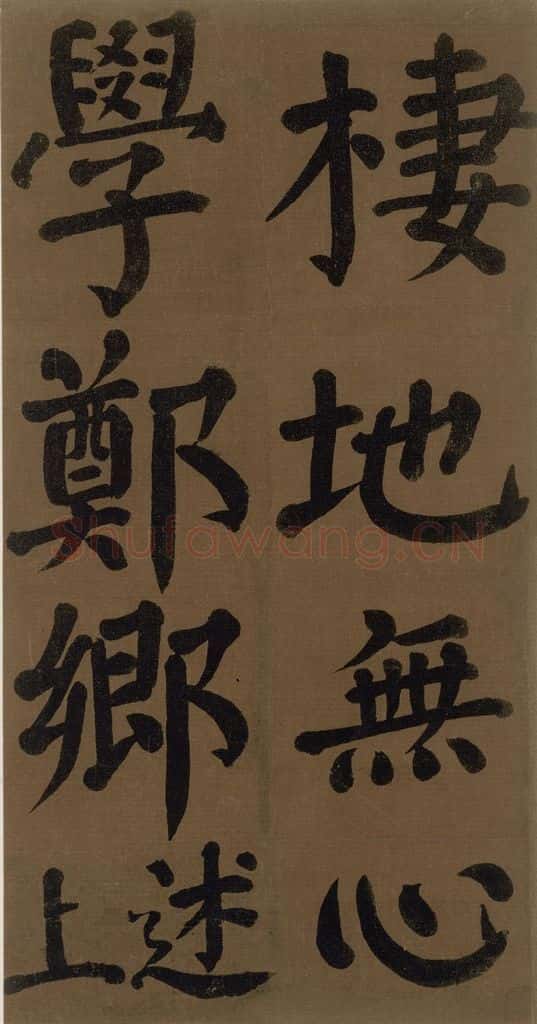 棲地無心
學鄭鄉述上
Shufawang.CN